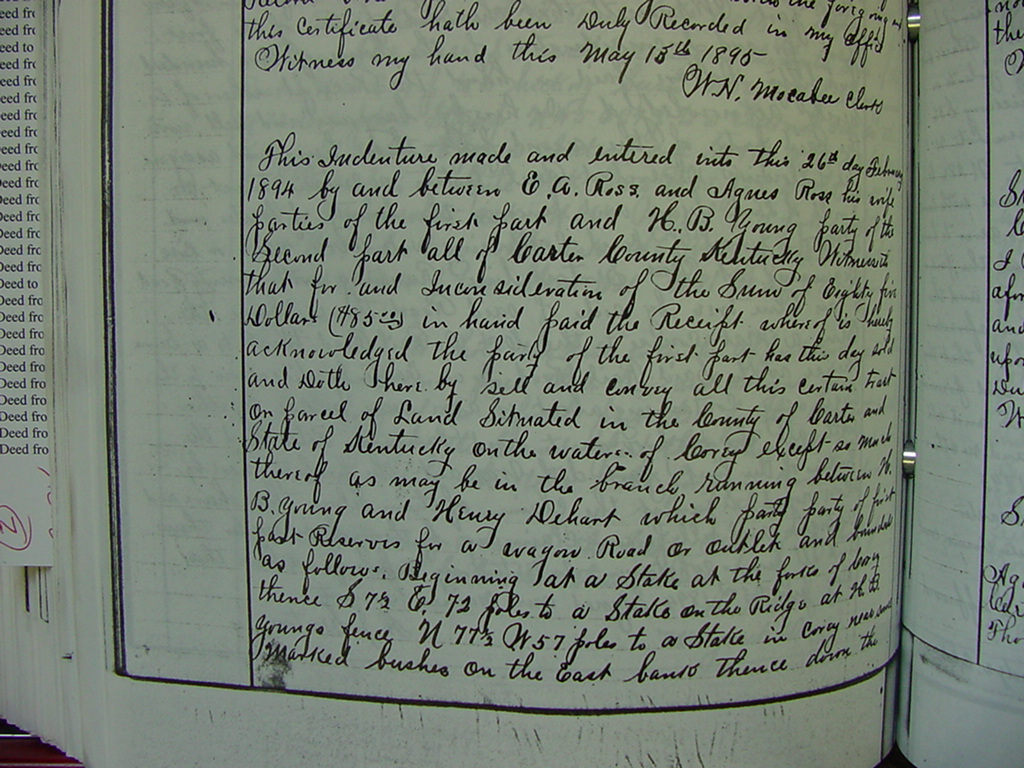 Deed fro
Deed fro
Deed fro
Deed to
Deed fro
Deed fro
Deed fro
Deed fro
Deed fro
Deed fro
Deed fro
Deed fro
Deed fro
Deed fro
Deed fro
Deed fro
Deed to
Deed fro
Deed fro
Deed fro
Deed fro
Deed fro
Deed fro
Deed fro
Deed fro
Deed fro
Deed fro
2
this certificate hath been Duly Recorded in my office
Witness my hand this May 15th 1895
W.N. Mocabee Clerk
This Indenture made and entered into this 26th day February
1894 by and between E. A. Ross and Agnes Ross his wife
parties of the first part and H. B. Young party of the
Second part all of Carter County Kentucky Witnesseth
that for and Inconsideration of the Sum of Eighty five
Dollars ($85.00) in hand paid the Receipt whereof is hereby
acknowledged the party of the first part has this day sold
and Doth Here by sell and convey all this certain tract
or parcel of Land Situated in the County of Carter and
State of Kentucky on the waters of Corey except so much
thereof as may be in the branch running between H.
B. Young and Henry Dehart which party party of first
part Reserves for a wagon Road or outlet and bounded
as follows. Beginning at a Stake at the forks of Corey
thence S 7½ E. 72 poles to a Stake on the Ridge at H. B.
Youngs fence N 77½ W 57 poles to a Stake in Corey near
Marked bushes on the East bank thence down the